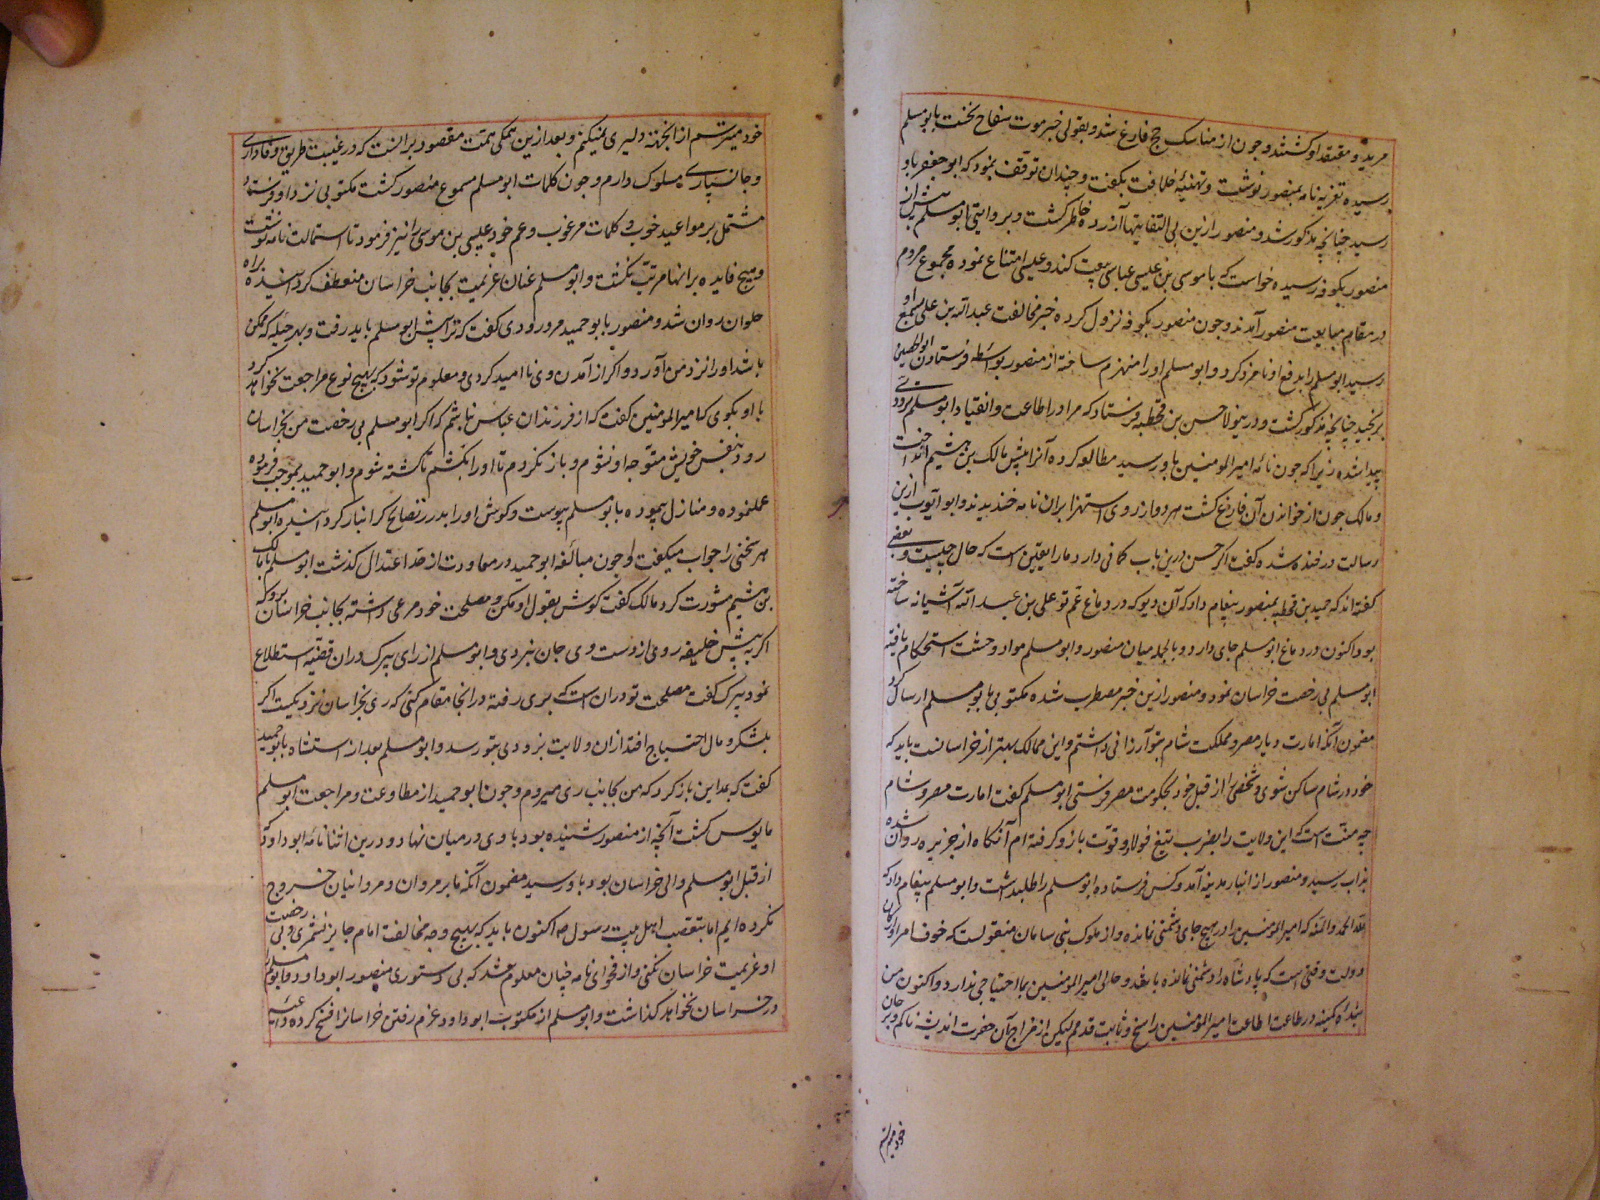 مرید و معتقد او گشتند و چون از مناسک حج فارغ شد و بقولی خبر موت سفاح نخست بابو مسلم
رسیده تعزیه نامه بمنصور نوشت و تهنیهٔ خلافت نگفت و چندان توقف نمود که ابو جعفر باو
رسید چنانچه مذکور شد و منصور ازین بی التفاتیها آزرده خاطر گشت و بروایتی ابو مسلم پیش از
منصور بکوفه رسیده خواست که با موسی بن عیسی عباسی بیعت کند و عیسی امتناع نموده مجموع مردم
در مقام مبایعت منصور آمدند و چون منصور بکوفه نزول کرده خبر مخالفت عبد الله بن علی بسمع او
رسید ابو مسلم را بدفع او نامزد کرد و ابو مسلم او را منهزم ساخته از منصور بواسطه فرستادن ابو الحصین
برنجید چنانچه مذکور گشت و درینولا حسن بن قحطبه فرستاد که مرا در اطاعت و انقیاد ابو مسلم ترددی
پیدا شده زیرا که چون نامهٔ امیر المومنین باو رسید مطالعه کرده آنرا پیش مالک بن هشیم انداخت
و مالک چون از خواندن آن فارغ گشت هر دو از روی استهزا بران نامه خندیدند و ابو ایوب ازین
رسالت در خنده شده گفت اگر حسن درین باب گمانی دارد ما را یقین است که حال چیست و بعضی
گفته‌اند که حمید بن قحطبه بمنصور پیغام داد که آن دیو که در دماغ عم تو علی بن عبد الله آشیانه ساخته
بود اکنون در دماغ ابو مسلم جای دارد و بالجمله میان منصور و ابو مسلم مواد وحشت استحکام یافته
ابو مسلم بی رخصت خراسان نمود و منصور ازین خبر مضطرب شده مکتوبی بابو مسلم ارسال کرد
مضمون آنکه امارت دیار مصر و مملکت شام بتو ارزانی داشتم و این ممالک بهتر از خراسانست باید که
خود در شام ساکن شوی و شخصی را از قبل خود بحکومت مصر فرستی ابو مسلم گفت امارت مصر و شام
چه منت است که این ولایت را بضرب تیغ فولاد و قوت بازو گرفته‌ام آنگاه از جزیره روان شده
بزاب رسید و منصور از انبار بمدینه آمد و کس فرستاده ابو مسلم را طلبداشت و ابو مسلم پیغام داد که
لله الحمد والمنه که امیر المومنین را در هیچ جای دشمنی نمانده و از ملوک بنی سامان منقولست که خوف امرا و ارکان
دولت وقتی است که پادشاه را دشمنی نمانده باشد و حالی امیر المومنین بما احتیاجی ندارد و اکنون من
بنده کمینه در طاعت اطاعت امیر المومنین راسخ و ثابت قدمم لیکن از مزاج آن حضرت اندیشه ناکم و بر جان
خود میترسم
خود میترسم از آنجهته دلیری نمیکنم و بعد ازین همگی همت مقصور برانست که در غیبت طریق وفاداری
و جانسپاری مسلوک دارم و چون کلمات ابو مسلم مسموع منصور گشت مکتوبی نزد او فرستاد
مشتمل بر مواعید خوب و کلمات مرغوب و عم خود عیسی بن موسی را نیز فرمود تا استمالت نامه نوشت
و هیچ فایده برانها مرتب نگشت و ابو مسلم عنان عزیمت بجانب خراسان منعطف گردانیده براه
حلوان روان شد و منصور بابو حمید مرورودی گفت که ترا پیش ابو مسلم باید رفت و بهر حیله که ممکن
باشد او را نزد من آورد و اگر از آمدن وی نا امید گردی و معلوم تو شود که بهیچ نوع مراجعت نخواهد کرد
با او بگوی که امیر المومنین گفت که از فرزندان عباس نباشم که اگر ابو مسلم بی رخصت من بخراسان
رود بنفس خویش متوجه او نشوم و باز نگردم تا او را بکشم یا کشته شوم و ابو حمید بموجب فرموده
عملنموده و منازل پیموده بابو مسلم پیوست و گوش او را بدرر نصایح گرانبار گردانیده ابو مسلم
هر سخنی را جواب میگفت و چون مبالغه ابو حمید در معاودت از حد اعتدال گذشت ابو مسلم با مالک
بن هشیم مشورت کرد مالک گفت گوش بقول او مکن و مصلحت خود مرعی داشته بجانب خراسان برو که
اگر به پیش خلیفه روی از دست وی جان نبردی و ابو مسلم از رای نیزک دران قضیه استطلاع
نمود نیزک گفت مصلحت تو دران است که بری رفته در انجا مقام کنی که ری بخراسان نزدیکست اگر
بلشکر و مال احتیاج افتد ازان ولایت بزودی بتو رسد و ابو مسلم بعد از استشاره بابو حمید
گفت که بعد این باز گرد که من بجانب ری میروم و چون ابو حمید از مطاوعت و مراجعت ابو مسلم
مایوس گشت آنچه از منصور شنیده بود با وی در میان نهاد و درین اثنا نامهٔ ابو داود که
از قبل ابو مسلم والی خراسان بود باو رسید مضمون آنکه ما بر مروان و مروانیان خروج
نکرده‌ایم اما بتعصب اهل بیت رسول صه اکنون باید که بهیچ وجه مخالفت امام جایز نشمری و بی رخصت
او عزیمت خراسان نکنی و از فحوای نامه چنان معلوم شد که بی دستوری منصور ابو داود ابو مسلم را
در خراسان نخواهد گذاشت و ابو مسلم از مکتوب ابو داود عزم رفتن خراسانرا فسخ کرده داعیه